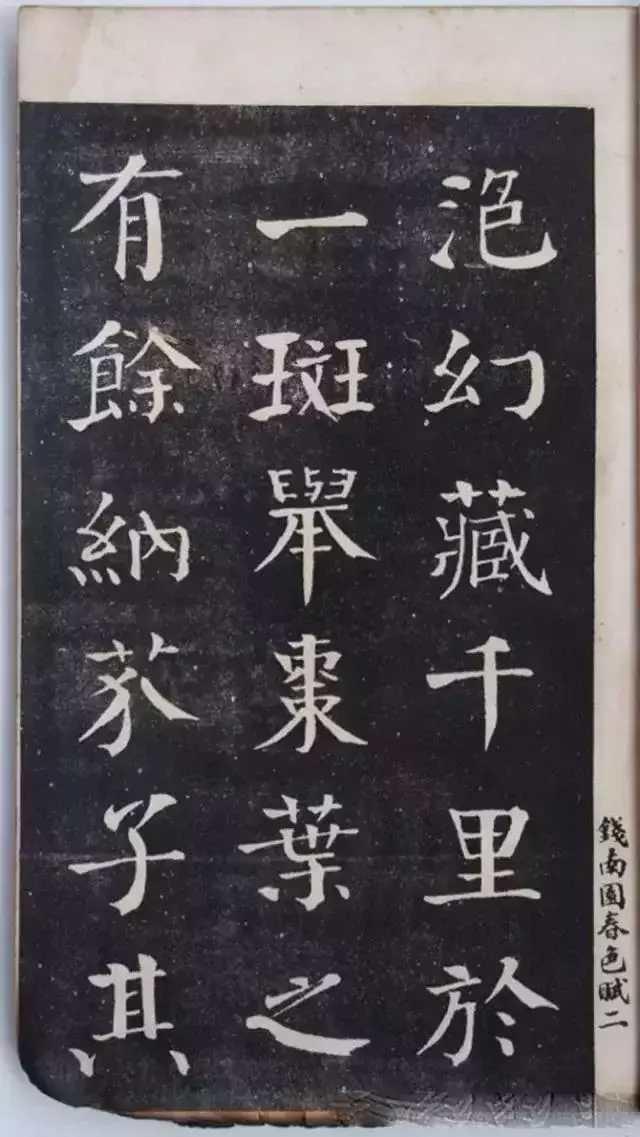 泡幻藏千里於
一斑舉棗葉之
有餘納芥子其
錢南園春色賦二